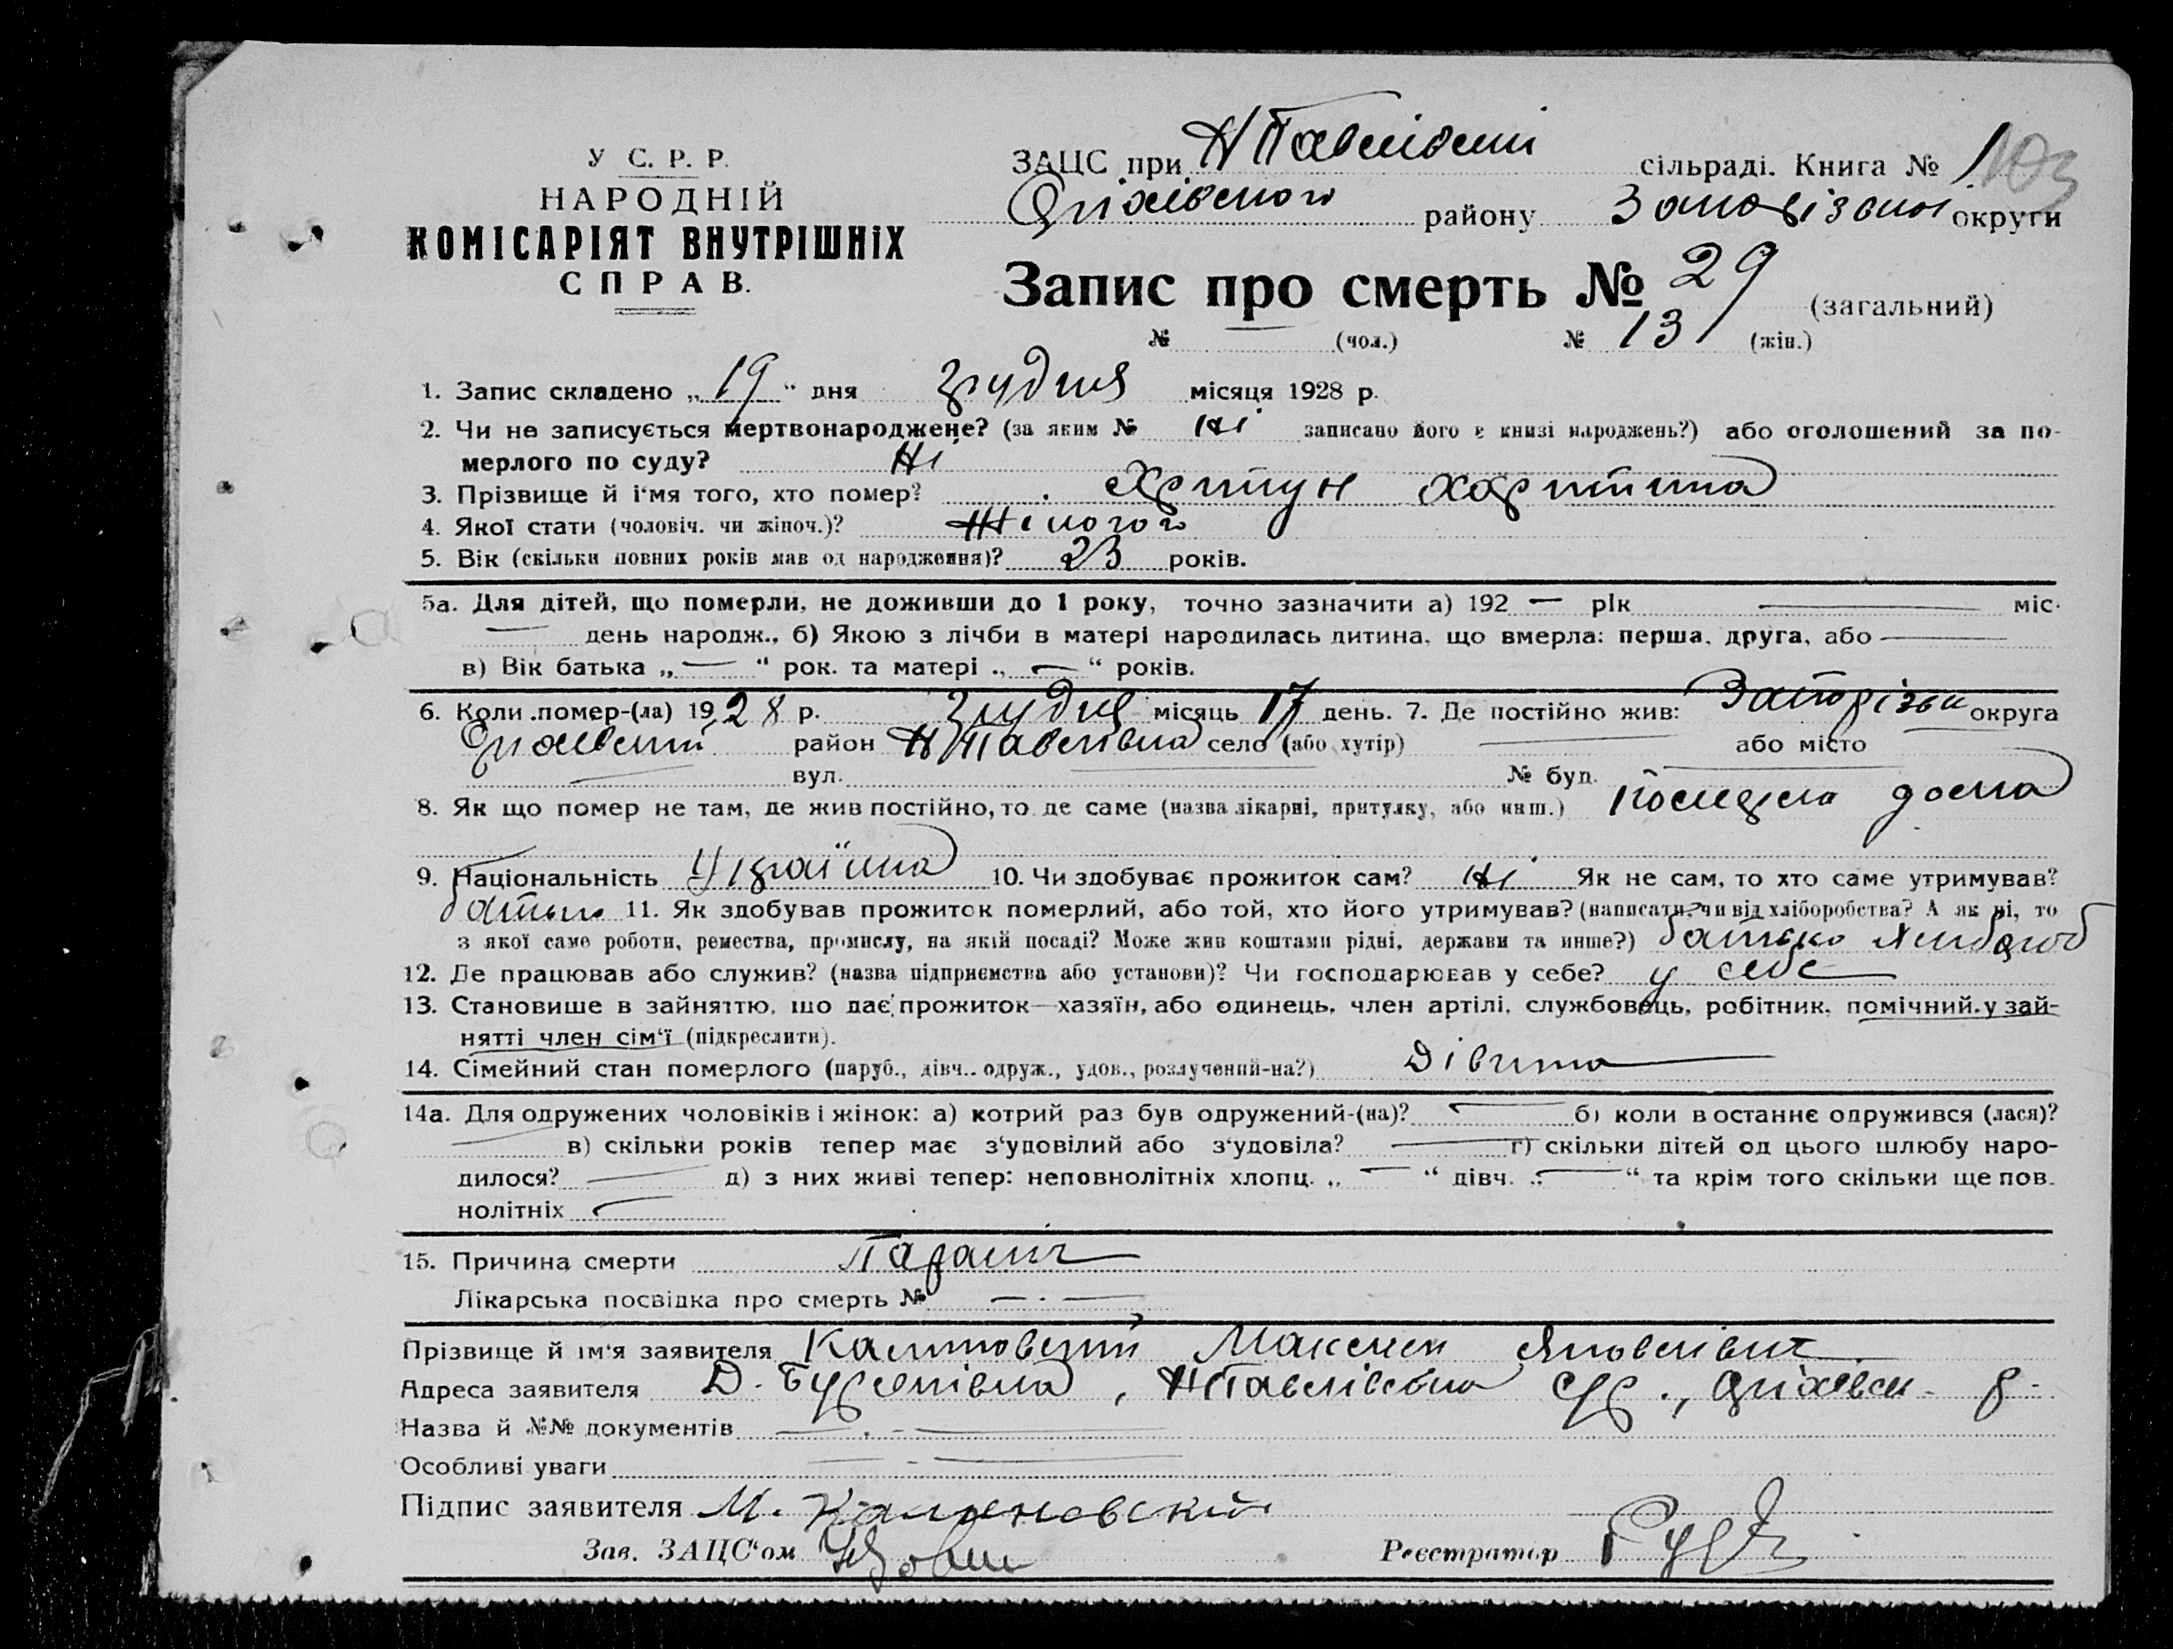 У С. Р. Р.
НАРОДНІЙ
КОМІСАРІЯТ ВНУТРІШНІХ
СПРАВ.
ЗАЦС при Н Павлівській сільраді. Книга № 1
103
Оріхівського району Запорізької округи
Запис про смерть № 29 (загальний)
№ — (чол.) № 13 (жін.)
1. Запис складено „ 19 “ дня грудня місяця 1928 р.
2. Чи не записується мертвонароджене? (за яким № ні записано його в книзі народжень?) або оголошений за по-
мерлого по суду? Ні
3. Прізвище й і'мя того, хто помер? Харитина
4. Якої стати (чоловіч. чи жіноч.)? Жіночого
5. Вік (скільки повних років мав од народження)? 23 років.
5а. Для дітей, що померли, не доживши до 1 року, точно зазначити а) 192 — рік — міс.
— день народж., б) Якою з лічби в матері народилась дитина, що вмерла: перша, друга, або —
в) Вік батька „ — “ рок. та матері „ — “ років.
6. Коли помер-(ла) 1928 р. грудня місяць 17 день. 7. Де постійно жив: Запорізьк округа
Оріхівський район Н Павлівка село (або хутір) — або місто
— вул. — № буд. —
8. Як що помер не там, де жив постійно, то де саме (назва лікарні, притулку, або инш.) Померла дома
9. Національність Українка 10. Чи здобуває прожиток сам? Ні Як не сам, то хто саме утримував?
батько 11. Як здобував прожиток померлий, або той, хто його утримував? (написати, чи від хліборобства? А як ні, то
з якої саме роботи, ремества, промислу, на якій посаді? Може жив коштами рідні, держави та инше?) батько хлібороб
12. Де працював або служив? (назва підприємства або установи)? Чи господарював у себе? у себе
13. Становище в зайняттю, що дає прожиток—хазяїн, або одинець, член артілі, службовець, робітник, помічний у зай-
нятті член сім'ї (підкреслити).
14. Сімейний стан померлого (паруб., дівч., одруж., удов., розлучений-на?) Дівчина
14а. Для одружених чоловіків і жінок: а) котрий раз був одружений-(на)? — б) коли в останнє одружився (лася)?
— в) скільки років тепер має з'удовілий або з'удовіла? — г) скільки дітей од цього шлюбу наро-
дилося? — д) з них живі тепер: неповнолітніх хлопц. „ — “ дівч. „ — “ та крім того скільки ще пов.
нолітніх —
15. Причина смерти Параліч
Лікарська посвідка про смерть № — . —
Прізвище й ім'я заявителя Калиновський Максим Яковлівич
Адреса заявителя Д. , НПавлівська с/р., Оріхівськ. р.
Назва й №№ документів — . —
Особливі уваги — - —
Підпис заявителя М. Калиновскій
Зав. ЗАЦС'ом Реєстратор